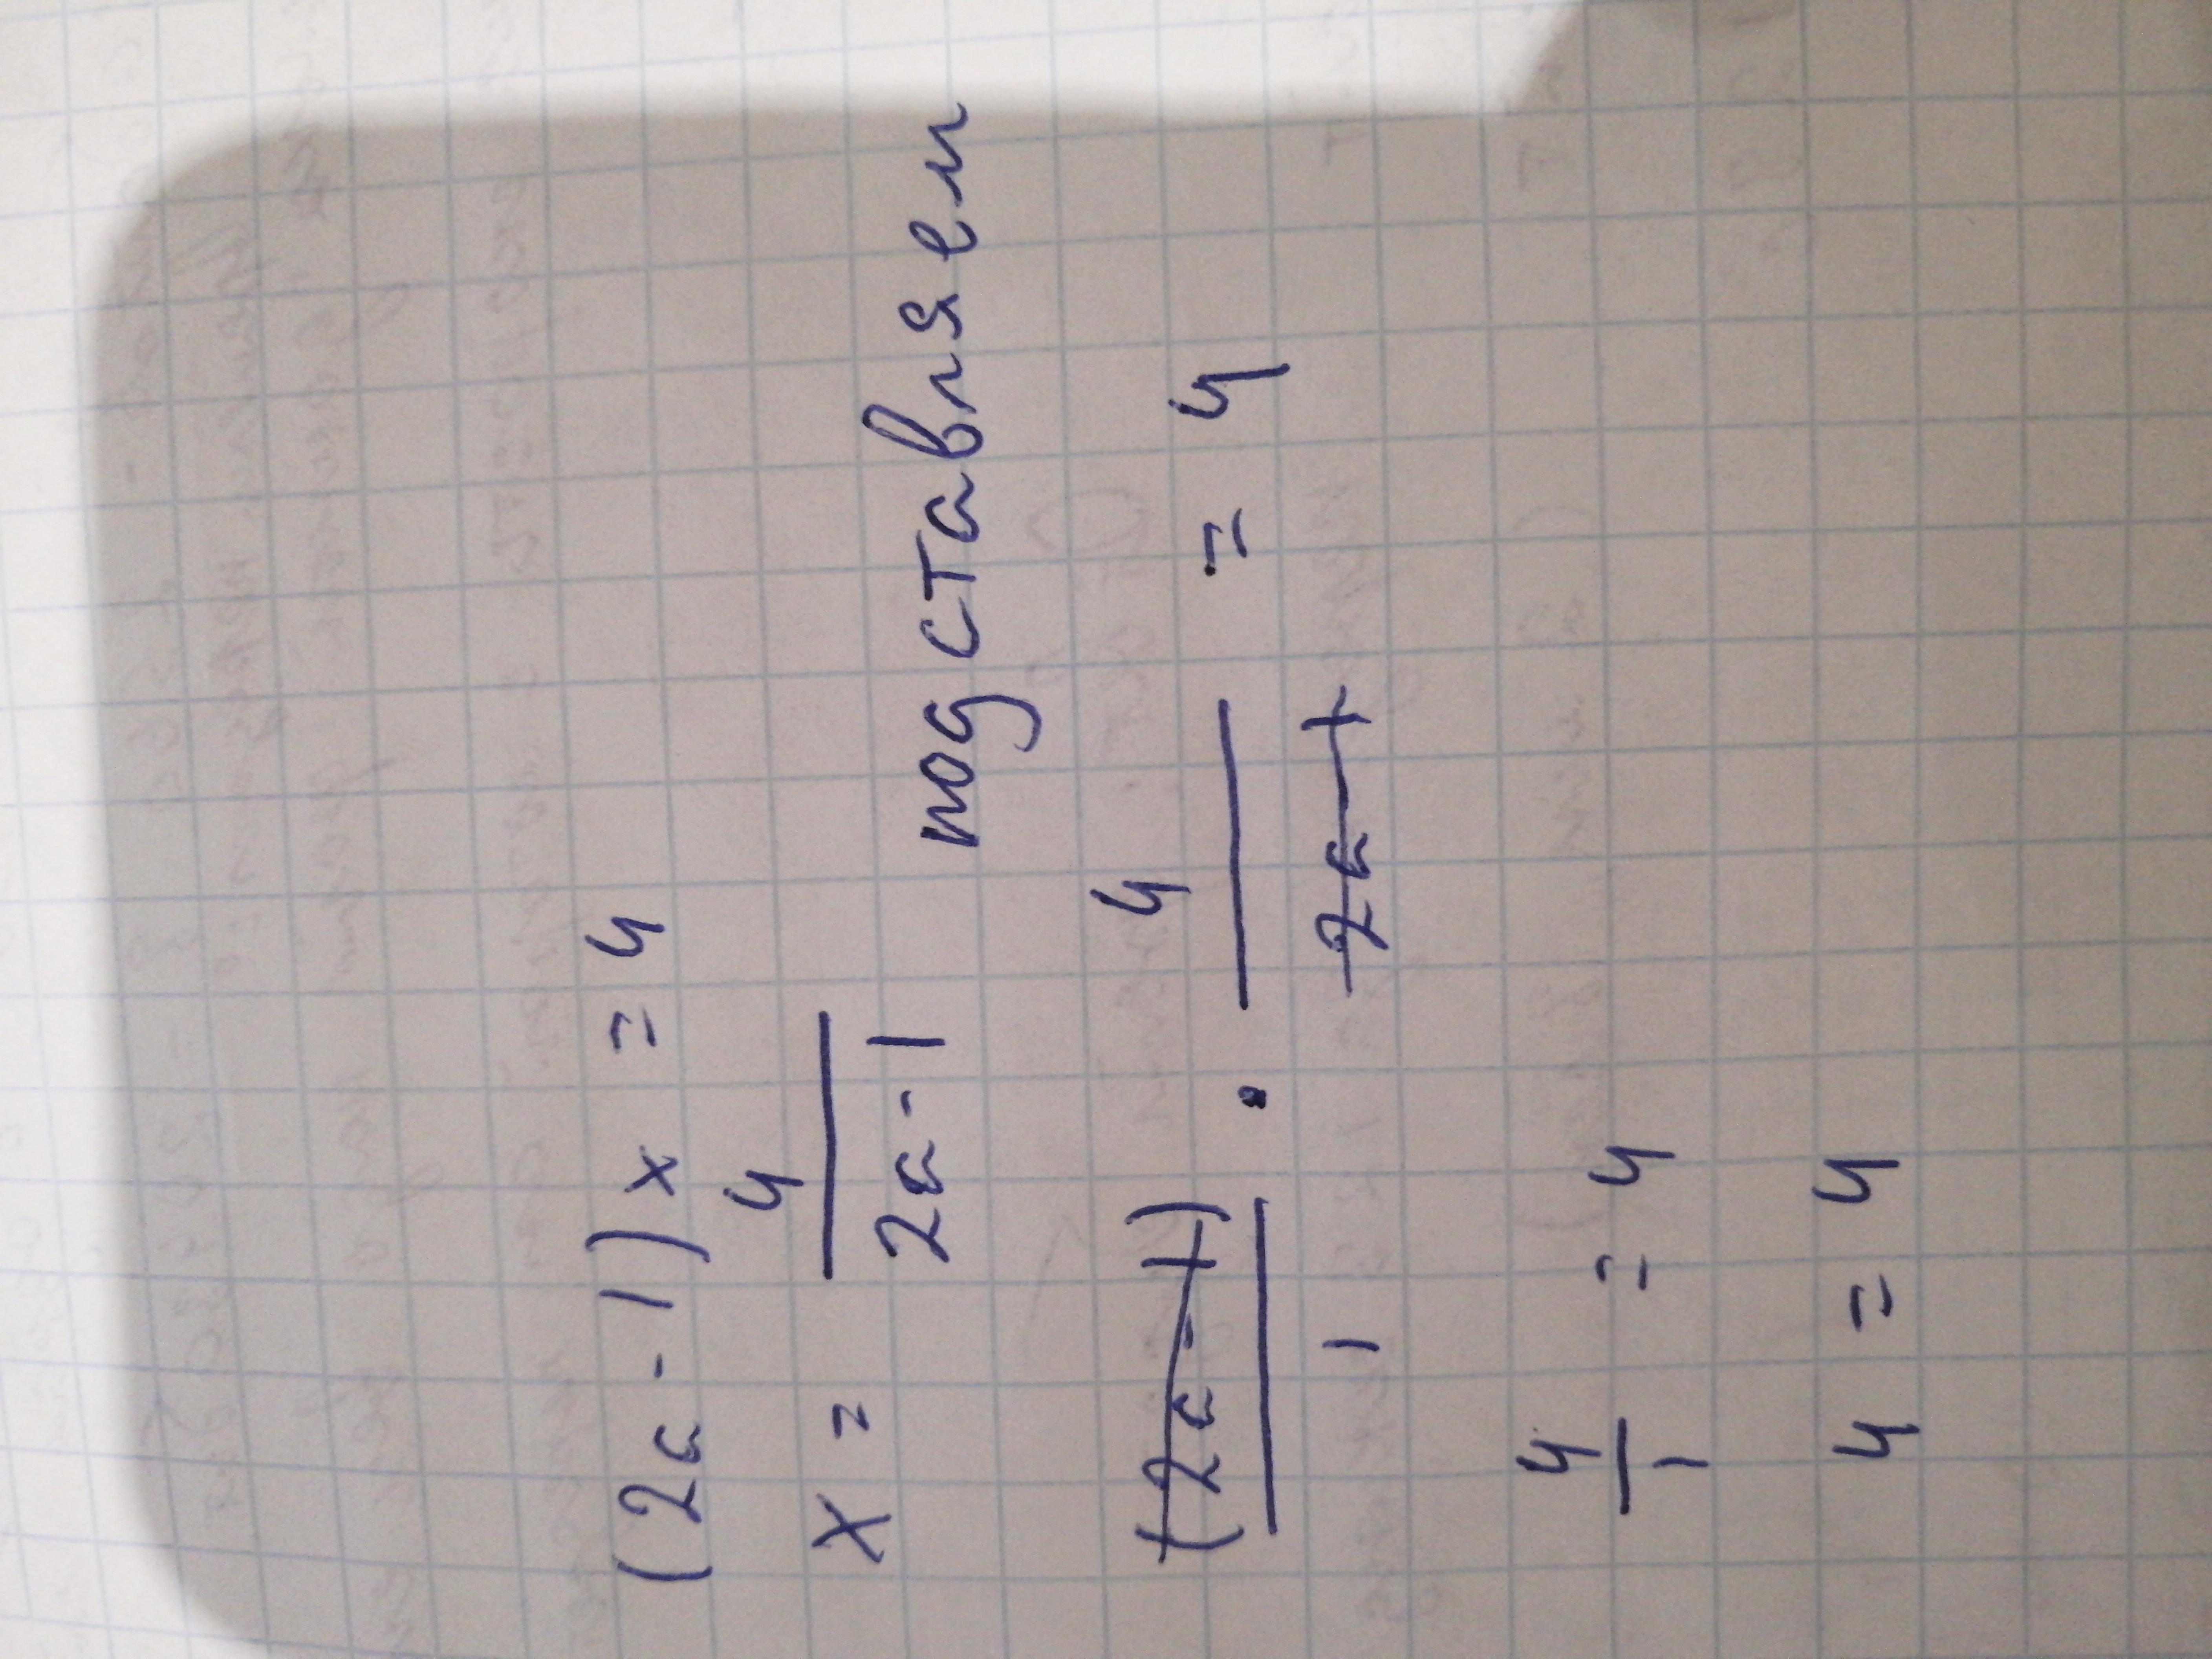 (2a - 1) x = 4
x = 4/(2a - 1) подставляем
(2a - 1)/1 · 4/(2a - 1) = 4
4/1 = 4
4 = 4